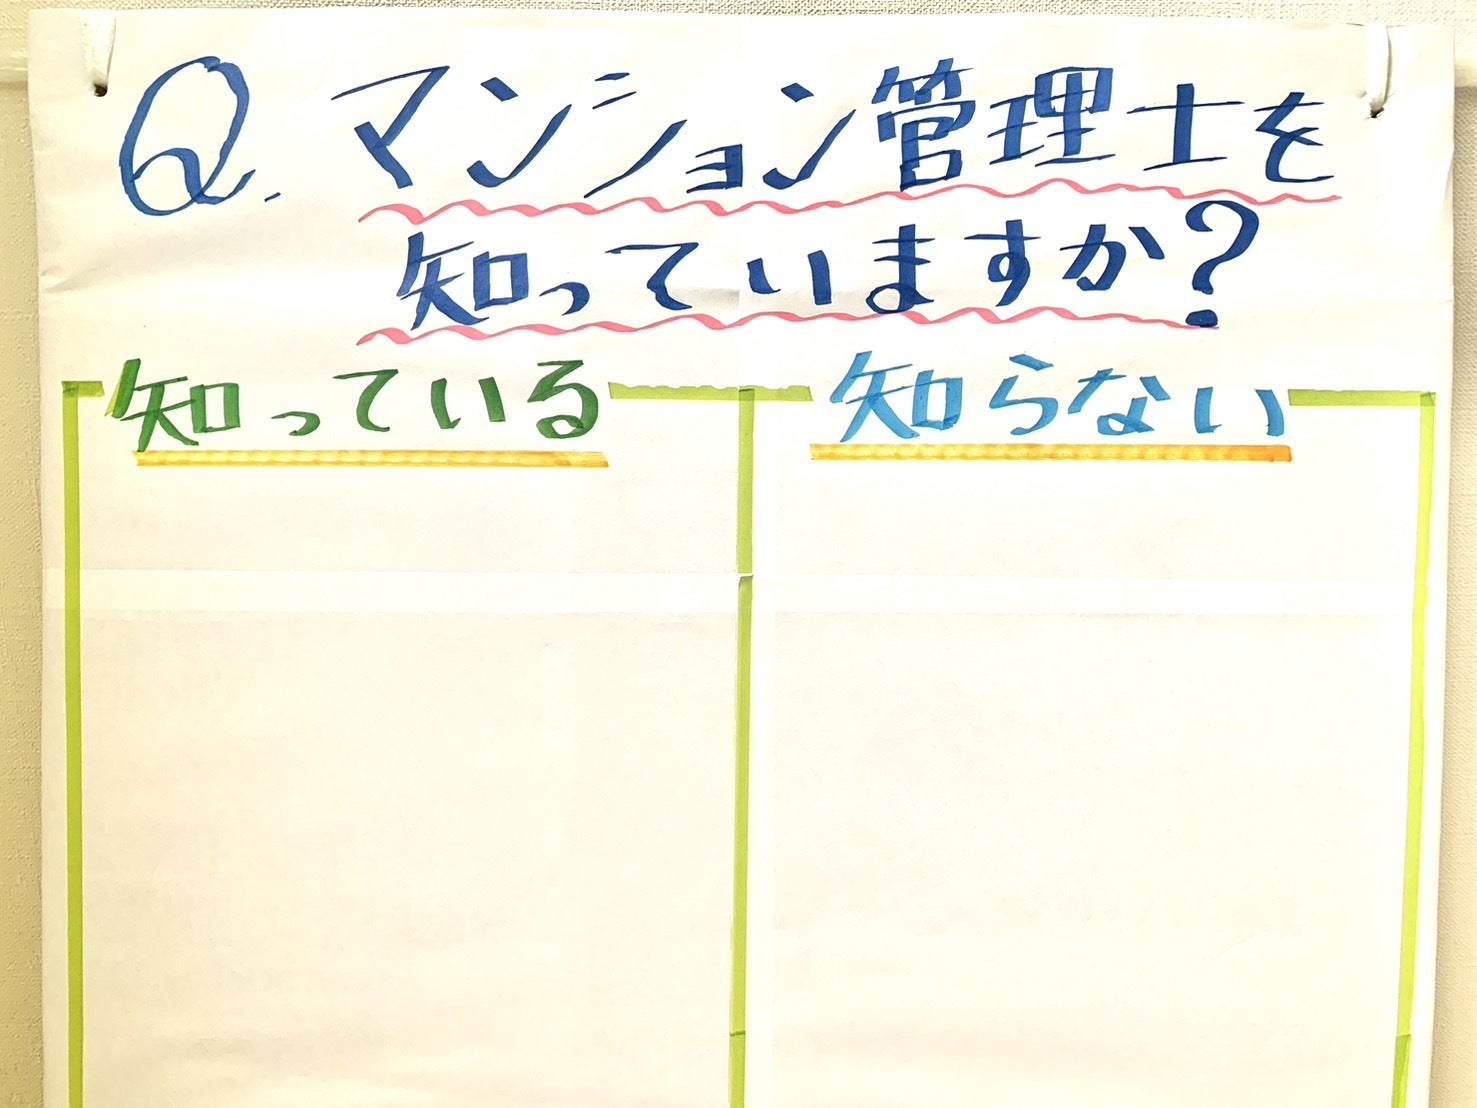 Q. マンション管理士を
知っていますか?
知っている
知らない